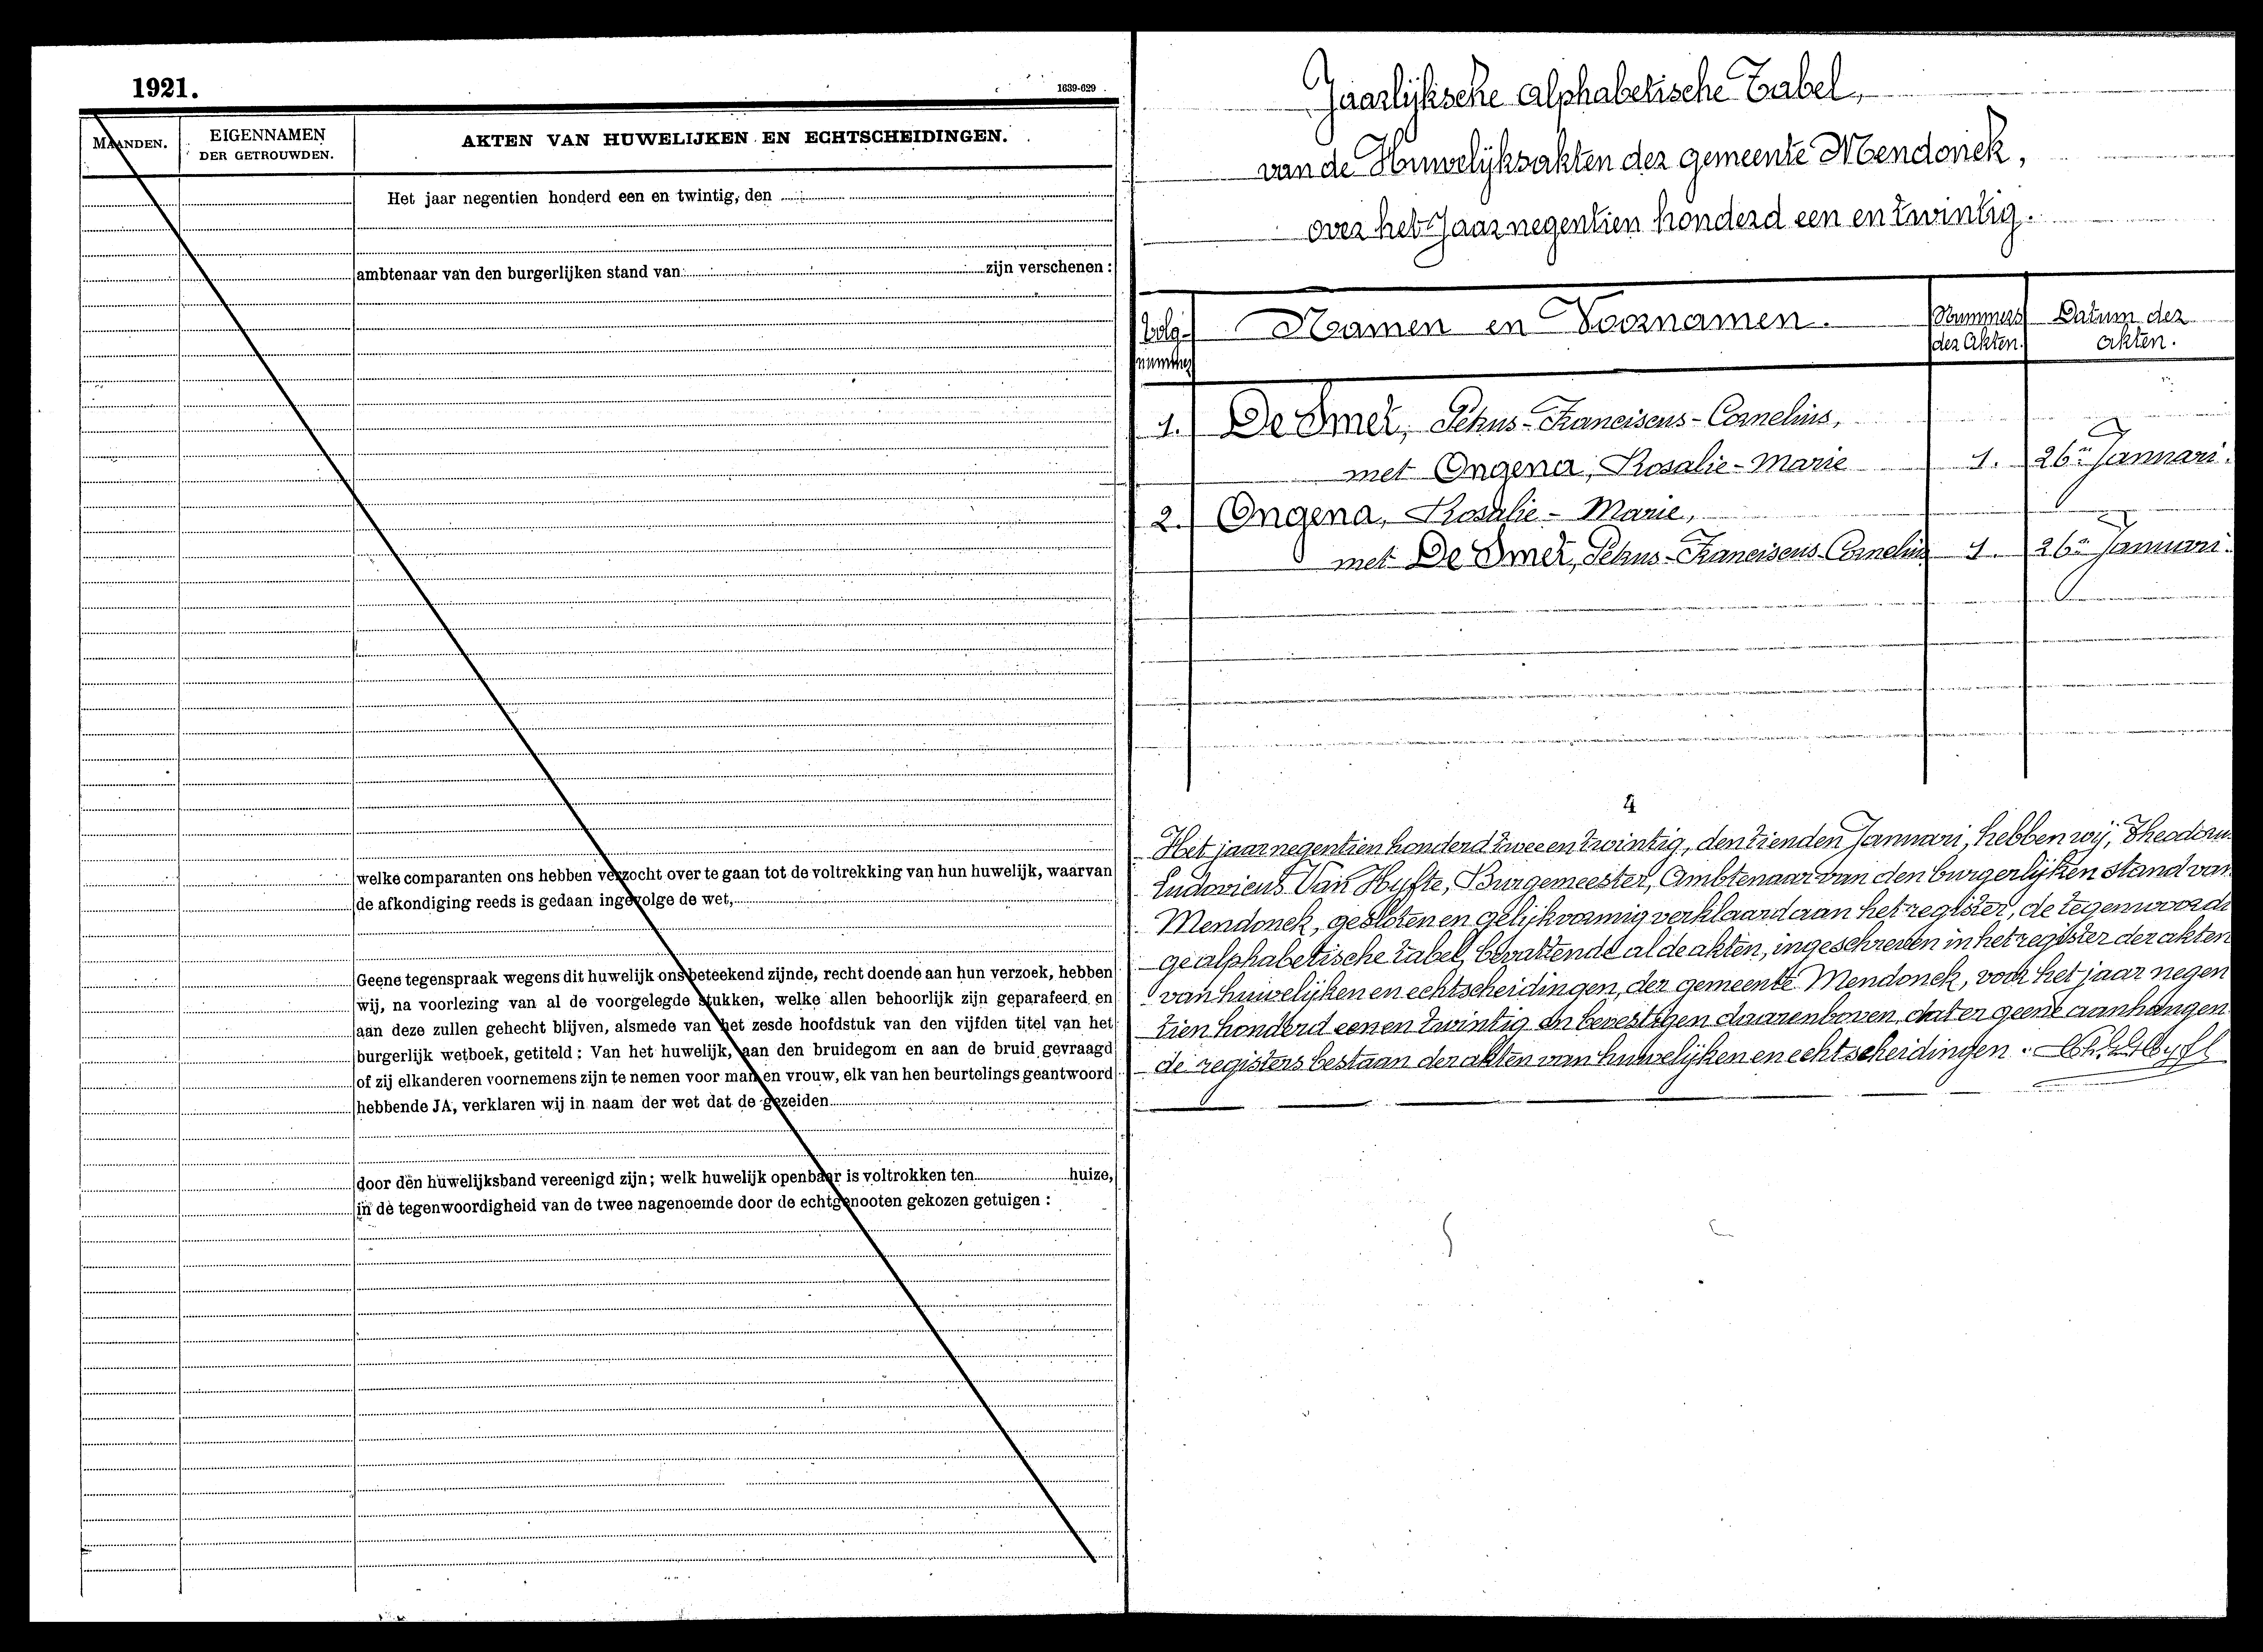 1921.
1639-629
MAANDEN.
EIGENNAMEN
DER GETROUWDEN.
AKTEN VAN HUWELIJKEN EN ECHTSCHEIDINGEN.
Het jaar negentien honderd een en twintig, den
ambtenaar van den burgerlijken stand van zijn verschenen :
welke comparanten ons hebben verzocht over te gaan tot de voltrekking van hun huwelijk, waarvan
de afkondiging reeds is gedaan ingevolge de wet,
Geene tegenspraak wegens dit huwelijk ons beteekend zijnde, recht doende aan hun verzoek, hebben
wij, na voorlezing van al de voorgelegde stukken, welke allen behoorlijk zijn geparafeerd en
aan deze zullen gehecht blijven, alsmede van het zesde hoofdstuk van den vijfden titel van het
burgerlijk wetboek, getiteld : Van het huwelijk, aan den bruidegom en aan de bruid gevraagd
of zij elkanderen voornemens zijn te nemen voor man en vrouw, elk van hen beurtelings geantwoord
hebbende JA, verklaren wij in naam der wet dat de gezeiden
door den huwelijksband vereenigd zijn ; welk huwelijk openbaar is voltrokken ten huize,
in de tegenwoordigheid van de twee nagenoemde door de echtgenooten gekozen getuigen :
Jaarlijksche alphabetische Tabel,
van de Huwelijksakten der gemeente Mendonck,
over het Jaar negentien honderd een en twintig.
Volg-
nummer
Naamen en Voornamen.
Nummers
der Akten.
Datum der
akten.
1. De Smet, Petrus-Franciscus-Cornelius,
met Ongena, Rosalie-Marie 1. 26n Januari.
2. Ongena, Rosalie-Marie,
met De Smet, Petrus-Franciscus-Cornelius 1. 26n Januari.
Het jaar negentien honderd twee en twintig, den tienden Januari, hebben wij, Theodorus
Ludovicus Van Hyfte, Burgemeester, Ambtenaar van den burgerlijken stand van
Mendonck, gesloten en gelijkvormig verklaard aan het register, de tegenwoordi
ge alphabetische tabel, bevattende al de akten, ingeschreven in het register der akten
van huwelijken en echtscheidingen, der gemeente Mendonck, voor het jaar negen
tien honderd een en twintig en bevestigen daarenboven, dat er geene aanhangen
de registers bestaan der akten van huwelijken en echtscheidingen.